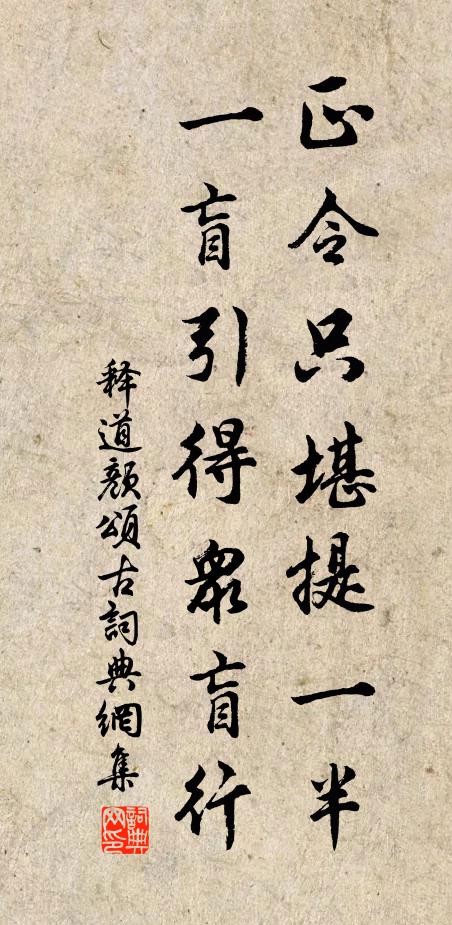 正令只堪提一半
一盲引得眾盲行
释道颜頌古詞典網集
詞典網印